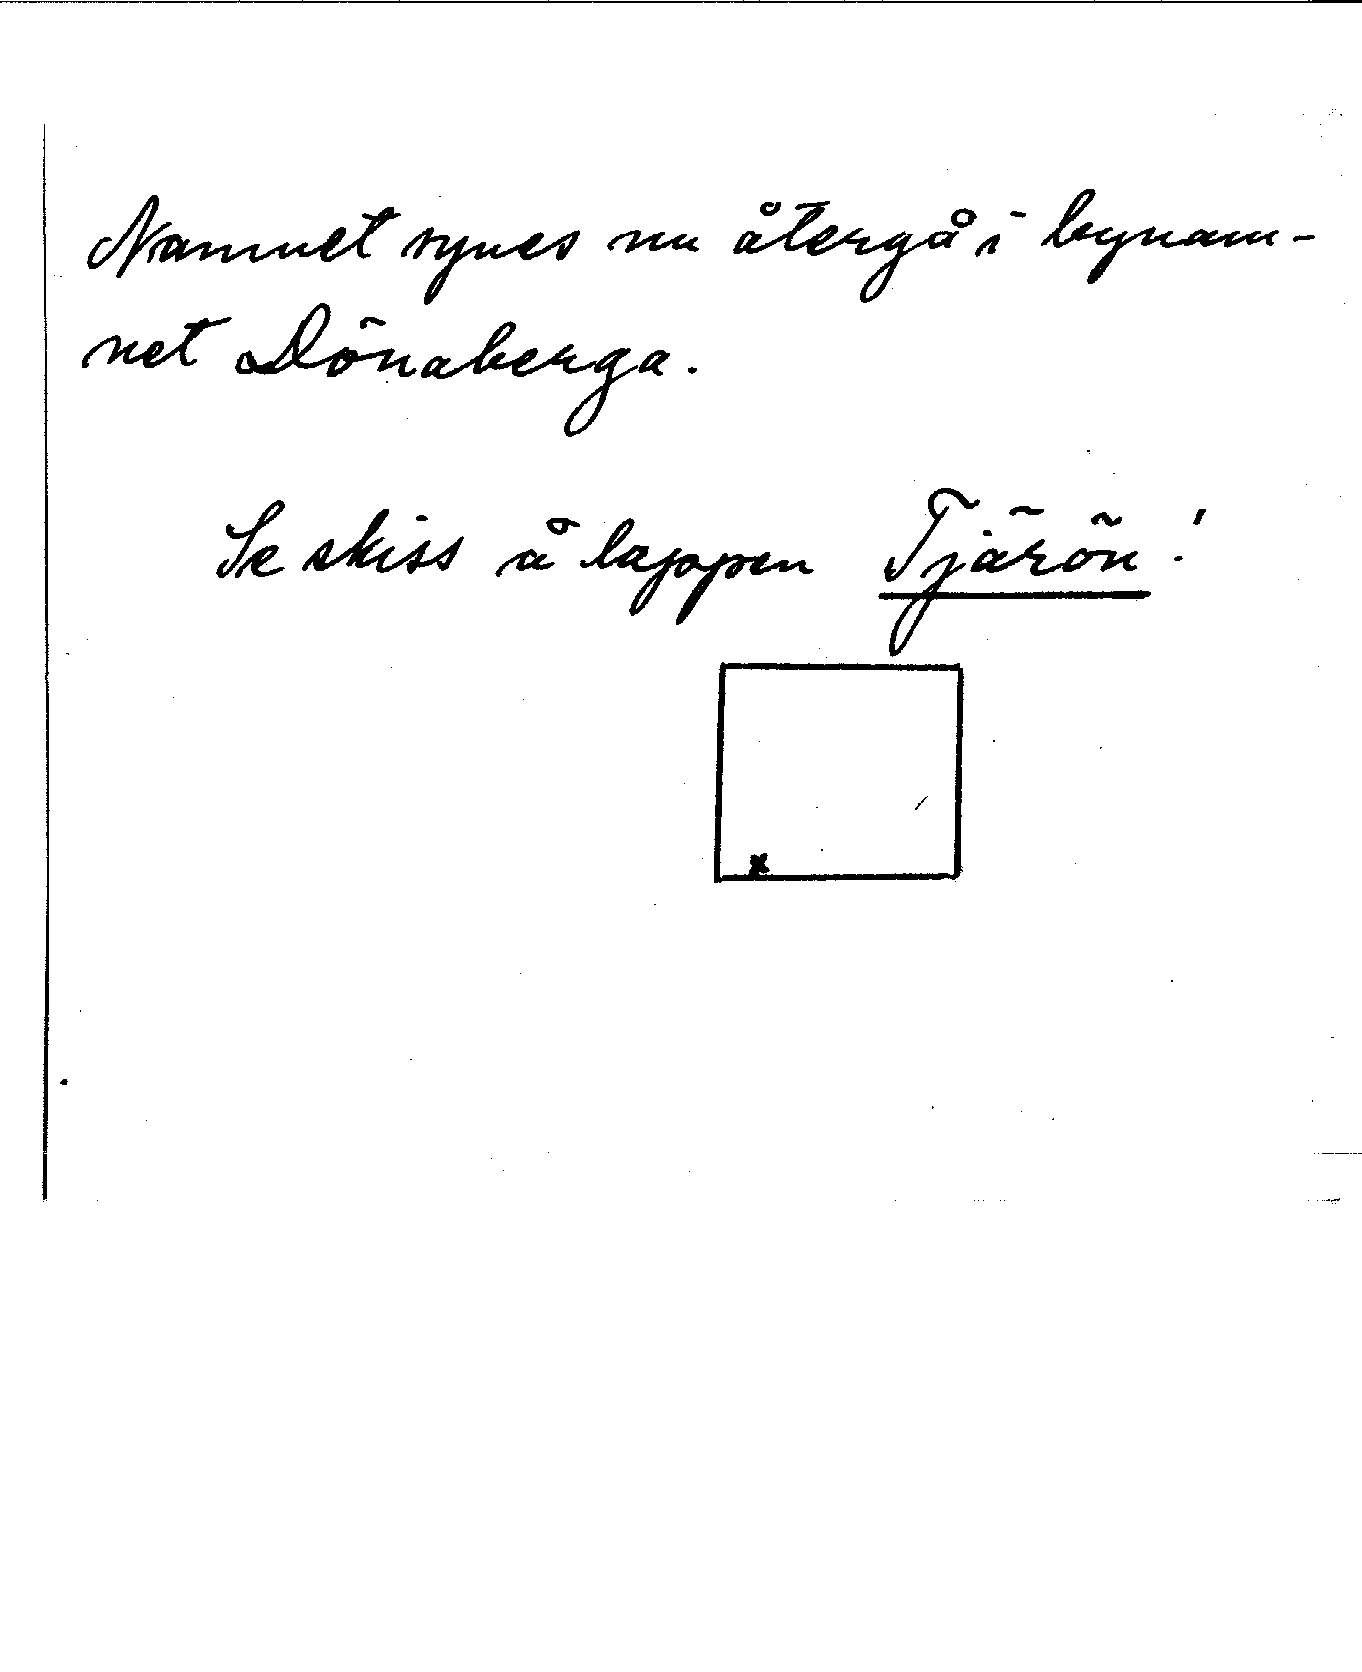 Namnet synes nu återgå i bynam-
net Dönaberga.
Se skiss å lappen Tjärön!
x